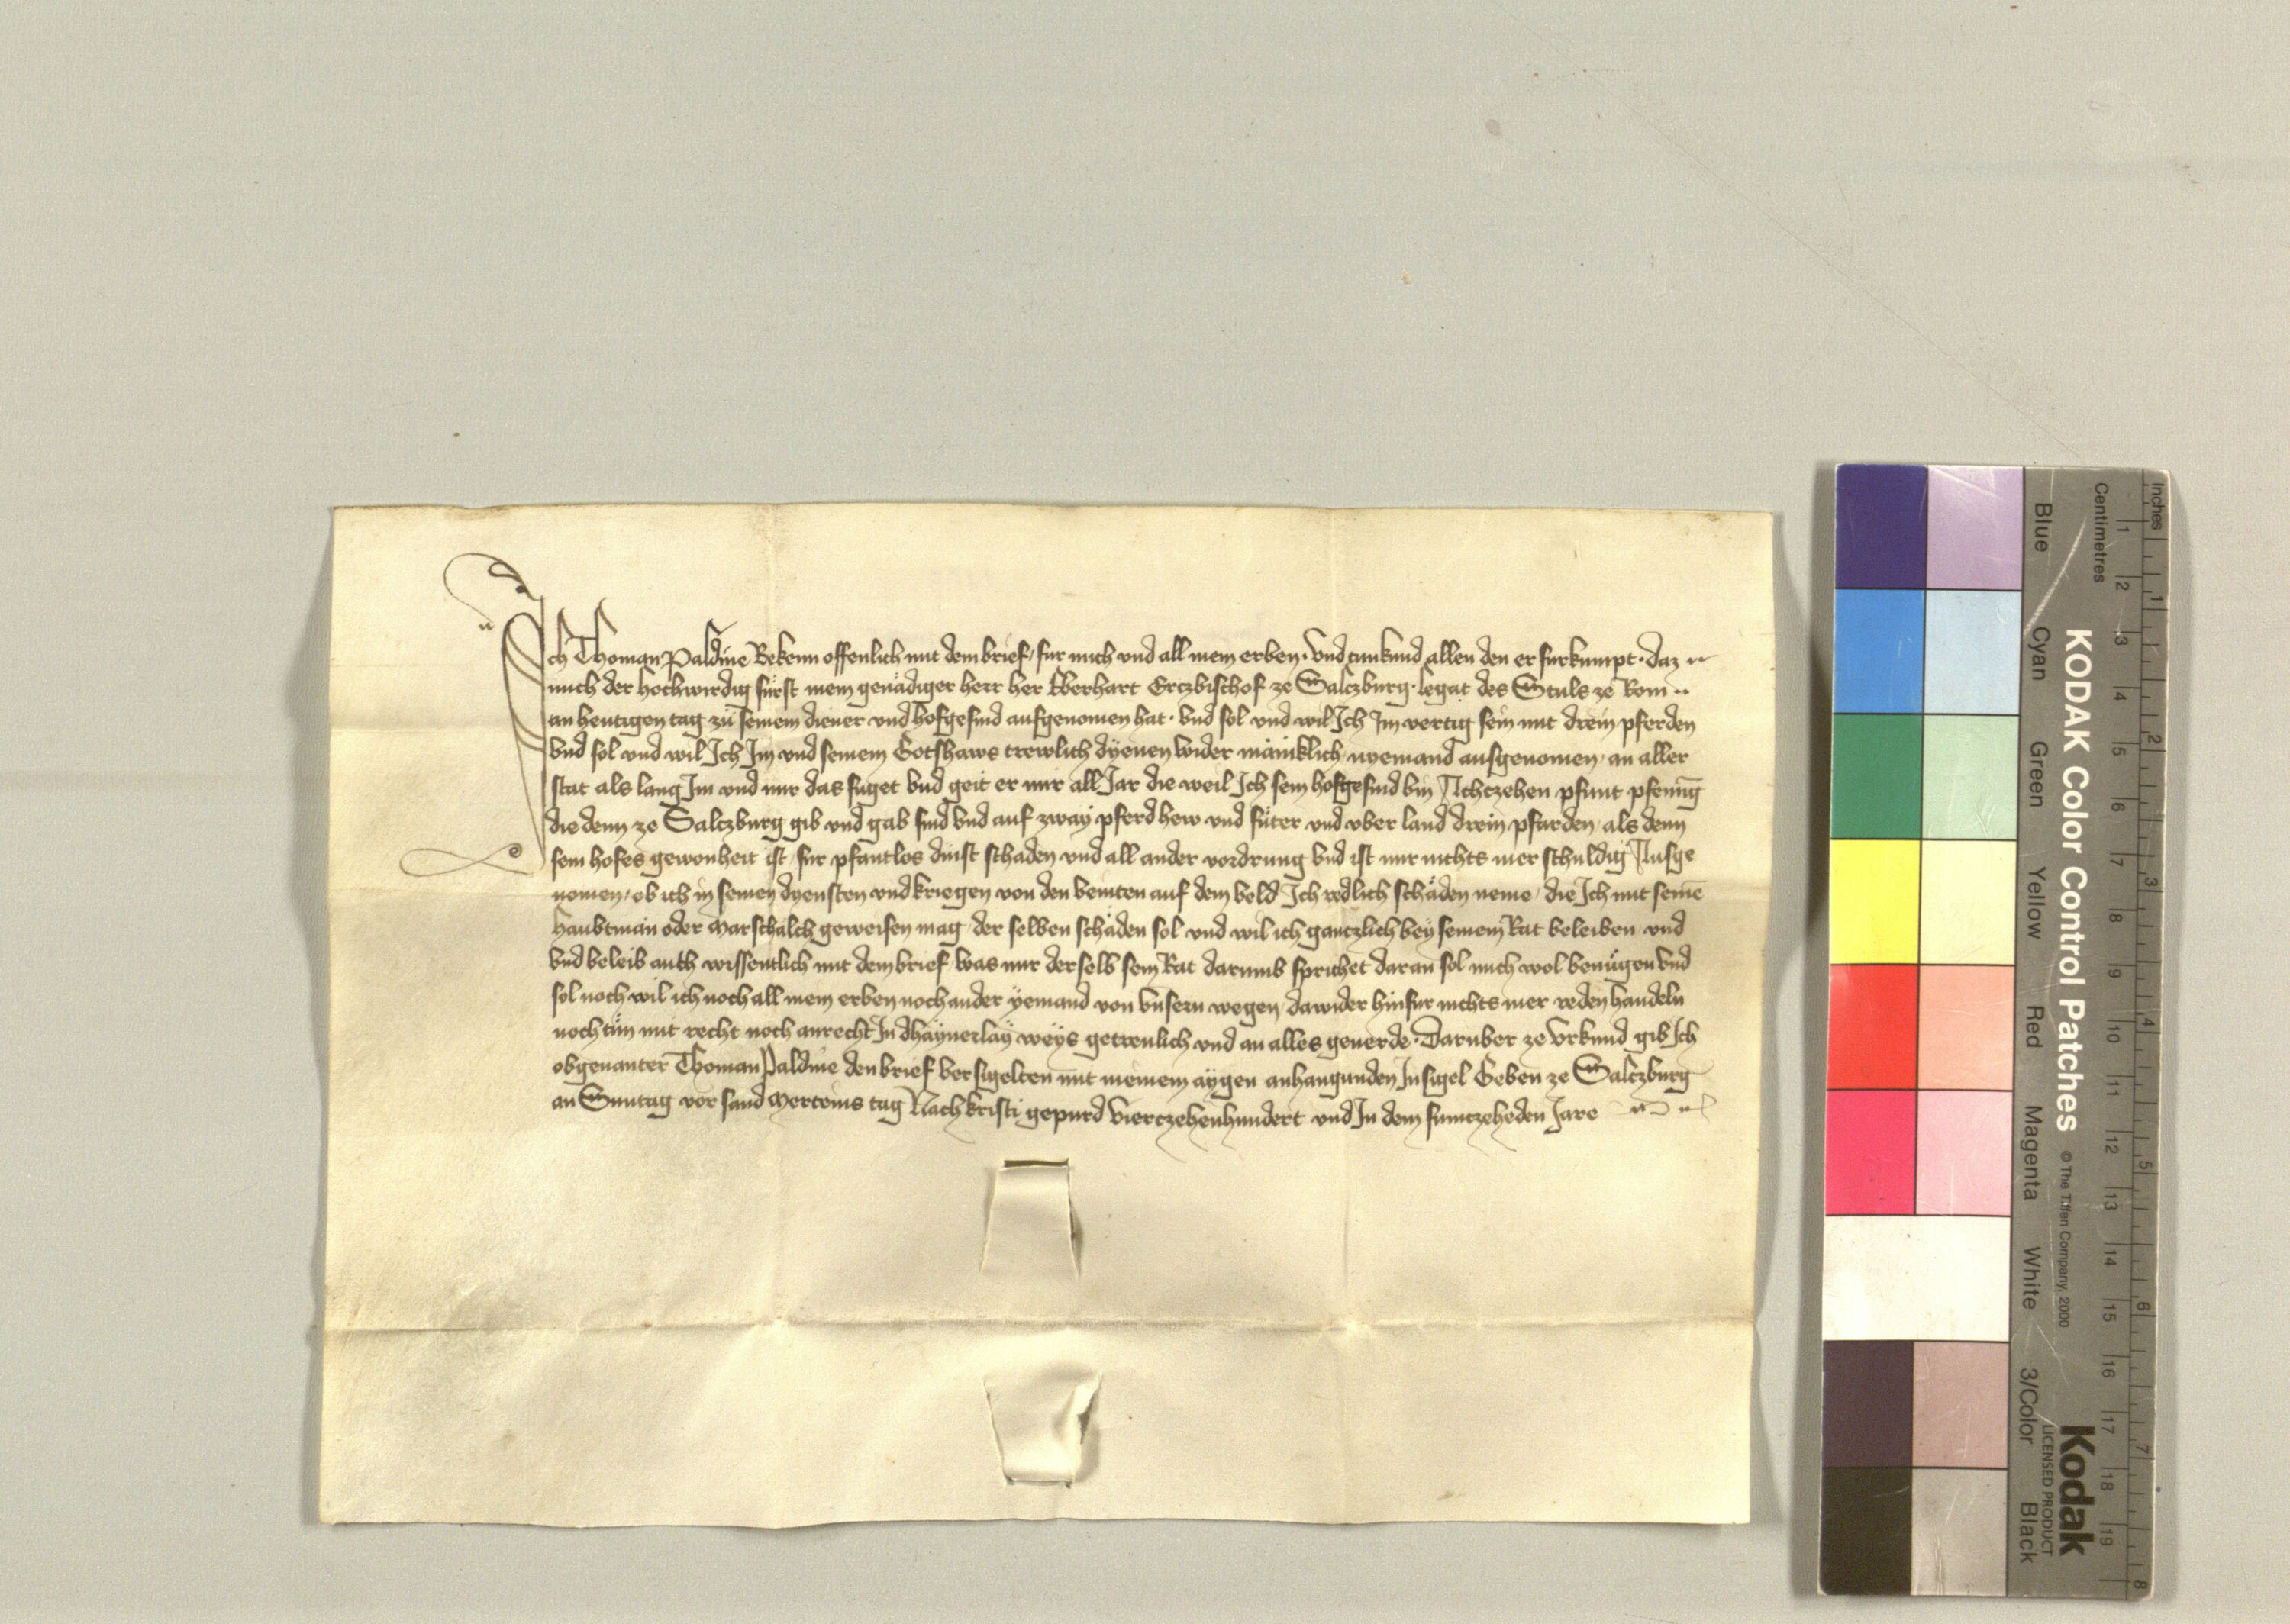 Ich Thoman Paldine Bekenn offenlich mit dem brief, fur mich vnd all mein erben. Vnd tun kund allen den er furkumpt. daz
mich der hochwirdig fürst mein genädiger herr her Eberhart Erczbischof ze Salczburg. legat des Stuls ze Rom
an hewtigen tag zü seinem diener vnd hofgesind aufgenomen hat. Vnd sol vnd wil Ich Im vertig sein mit drein pferden
Vnd sol vnd wil Ich Im vnd seinem Gotshaws trewlich dÿenen wider mäniklich nyemand ausgenomen, an aller
stat als lang Im vnd mir das fuget Vnd geit er mir all Jar die weil Ich sein hofgesind bin Achczehen pfunt pfening
die denn ze Salczburg gib vnd gab sind Vnd auf zway pferd hew vnd füter vnd vber land drein pfarden, als denn
sein hofes gewonheit ist, fur pfantlos dinst schaden vnd all ander vordrung Vnd ist mir nichts mer schuldig Ausge
nomen, ob ich in seinen dyensten vnd kriegen von den veinten auf dem veld Ich redlich schäden neme, die Ich mit seinē
haubtman oder marschalch geweisen mag, der selben schäden sol vnd wil ich gantzlich bey seinem Rat beleiben vnd
Vnd beleib auch wissentlich mit dem brief Was mir derselb sein Rat darumb sprichet daran sol mich wol benügen Vnd
sol noch wil ich noch all mein erben noch ander yemand von vnsern wegen dawider hinfur nichts mer reden handeln
noch tün mit recht noch anrecht In dhaynerlaÿ weÿs getrewlich vnd an alles geuerde. Daruber ze Vrkund gib Ich
obgenanter Thoman Paldine den brief Versigelten mit meinem aÿgen anhangunden Insigel Geben ze Salczburg
an Suntag vor sand Merteins tag Nach kristi gepurd Vierczehenhundert vnd In dem funtczeheden Jare
KODAK Color Control Patches
© The Tiffen Company, 2000
Kodak
LICENSED PRODUCT
Inches
Centimetres
Blue Cyan Green Yellow Red Magenta White 3/Color Black
1 2 3 4 5 6 7 8 9 10 11 12 13 14 15 16 17 18 19
1 2 3 4 5 6 7 8